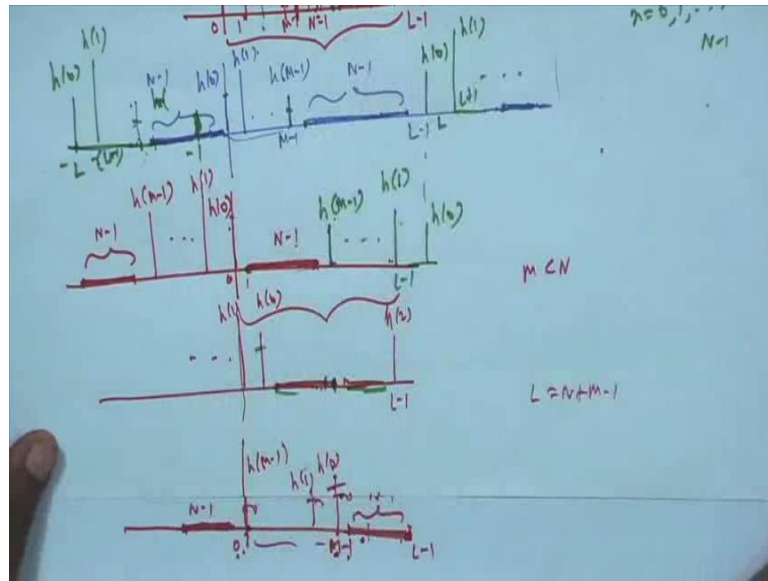 0 1 M-1 N-1 L-1
n=0,1,...
N-1
h(0) h(1) N-1 h(0) h(1) h(M-1) N-1 h(0) h(1)
-L -1 M-1 L-1 L L+1
h(M-1) h(1) h(0) h(M-1) h(1) h(0)
N-1 ... N-1 ...
0 1 L-1
M<N
h(1) h(0) h(2)
...
L-1
L=N+M-1
h(M-1) h(1) h(0)
N-1
0 L-1